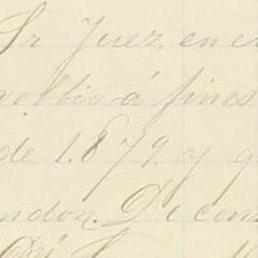 Sr Juez en e
volvio á fines
de 1.879. y q
ndon. Di com